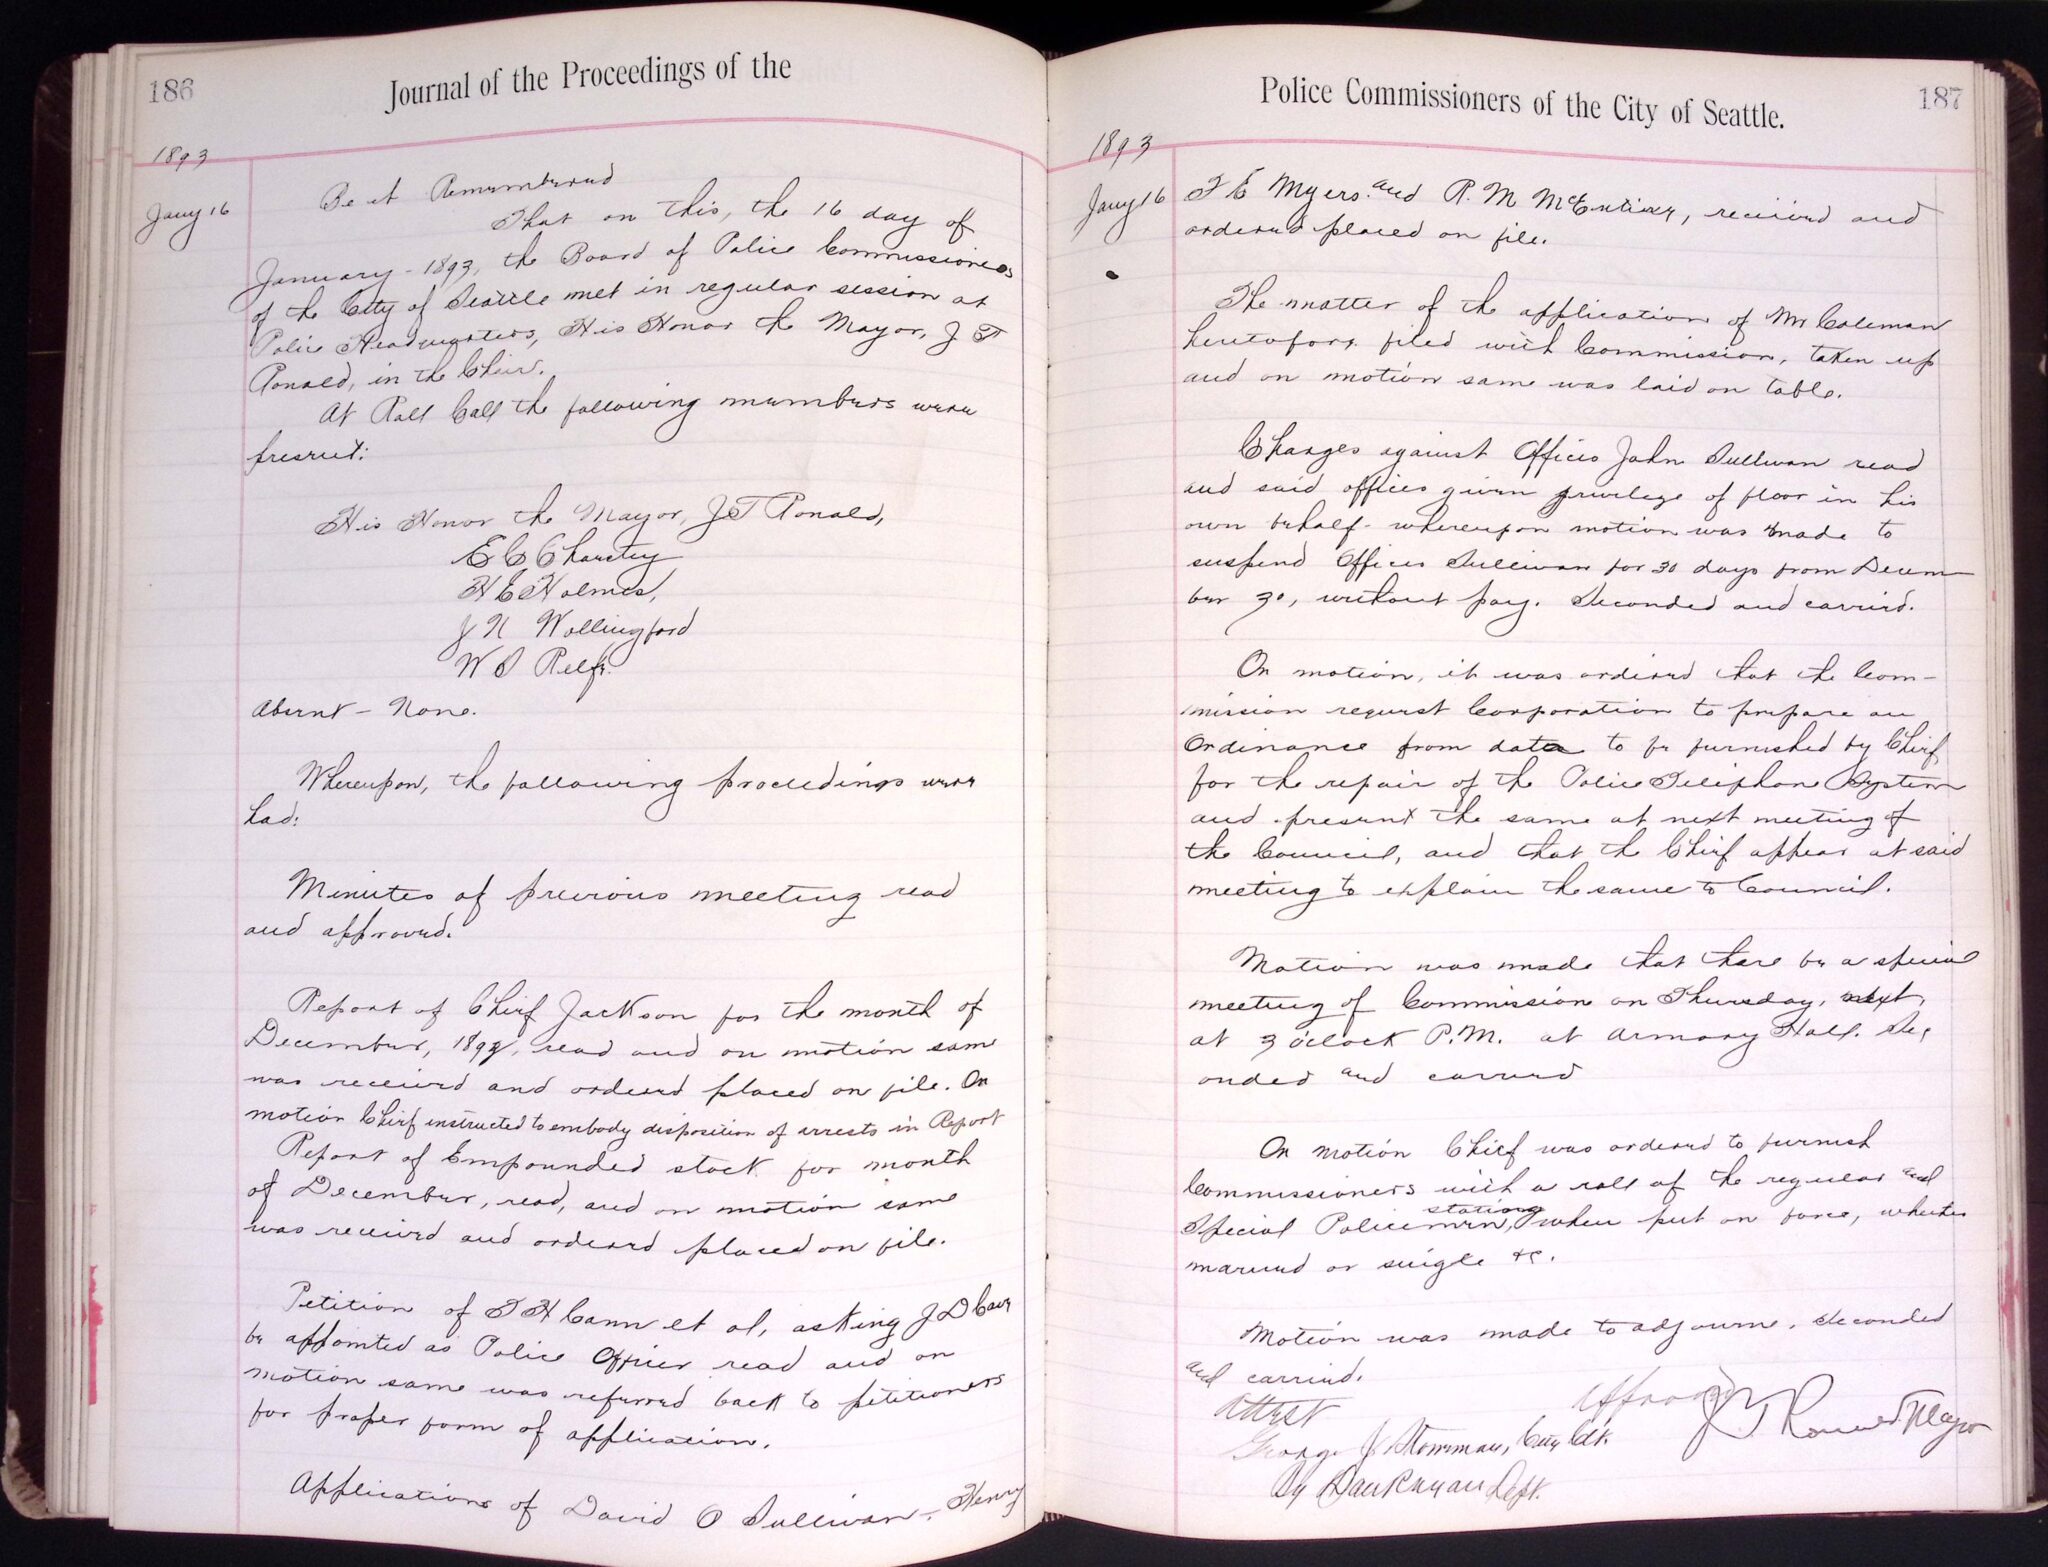 186
Journal of the Proceedings of the
1893
Jany 16
Be it Remembered
That on this, the 16 day of
January - 1893, the Board of Police Commissioners
of the City of Seattle met in regular session at
Police Headquarters, His Honor the Mayor, J T
Ronald, in the Chair.
At Roll Call the following members were
present:
His Honor the Mayor, J T Ronald,
E C
H E Holmes,
J N Wallingford
W S Relfe.
Absent - None.
Whereupon, the following proceedings were
had:
Minutes of previous meeting read
and approved.
Report of Chief Jackson for the month of
December, 1892, read and on motion same
was received and ordered placed on file. On
motion Chief instructed to embody disposition of arrests in Report
Report of Empounded stock for month
of December, read, and on motion same
was received and ordered placed on file.
Petition of T H Cann et al, asking J D
be appointed as Police Officer read and on
motion same was referred back to petitioners
for proper form of application.
Applications of David O Sullivan, Henry
Police Commissioners of the City of Seattle.
187
1893
Jany 16
T E Myers and R. M. McEntire, received and
ordered placed on file.
The matter of the application of Mr Coleman
heretofore filed with Commission, taken up
and on motion same was laid on table.
Charges against Officer John Sullivan read
and said officer given privilege of floor in his
own behalf - whereupon motion was made to
suspend Officer Sullivan for 30 days from Decem-
ber 30, without pay. Seconded and carried.
On motion, it was ordered that the Com-
mission request Corporation to prepare an
Ordinance from data to be furnished by Chief
for the repair of the Police Telephone System
and present the same at next meeting of
the Council, and that the Chief appear at said
meeting to explain the same to Council.
Motion was made that there be a special
meeting of Commission on Thursday, next,
at 3 o'clock P.M. at Armory Hall. Sec,
onded and carried
On motion Chief was ordered to furnish
Commissioners with a roll of the regular and
stating
Special Policemen, when put on force, whether
married or single &c.
Motion was made to adjourne. Seconded
and carried.
Attest
Approved
J T Ronald Mayor
George J, City Clk.
By Dept.